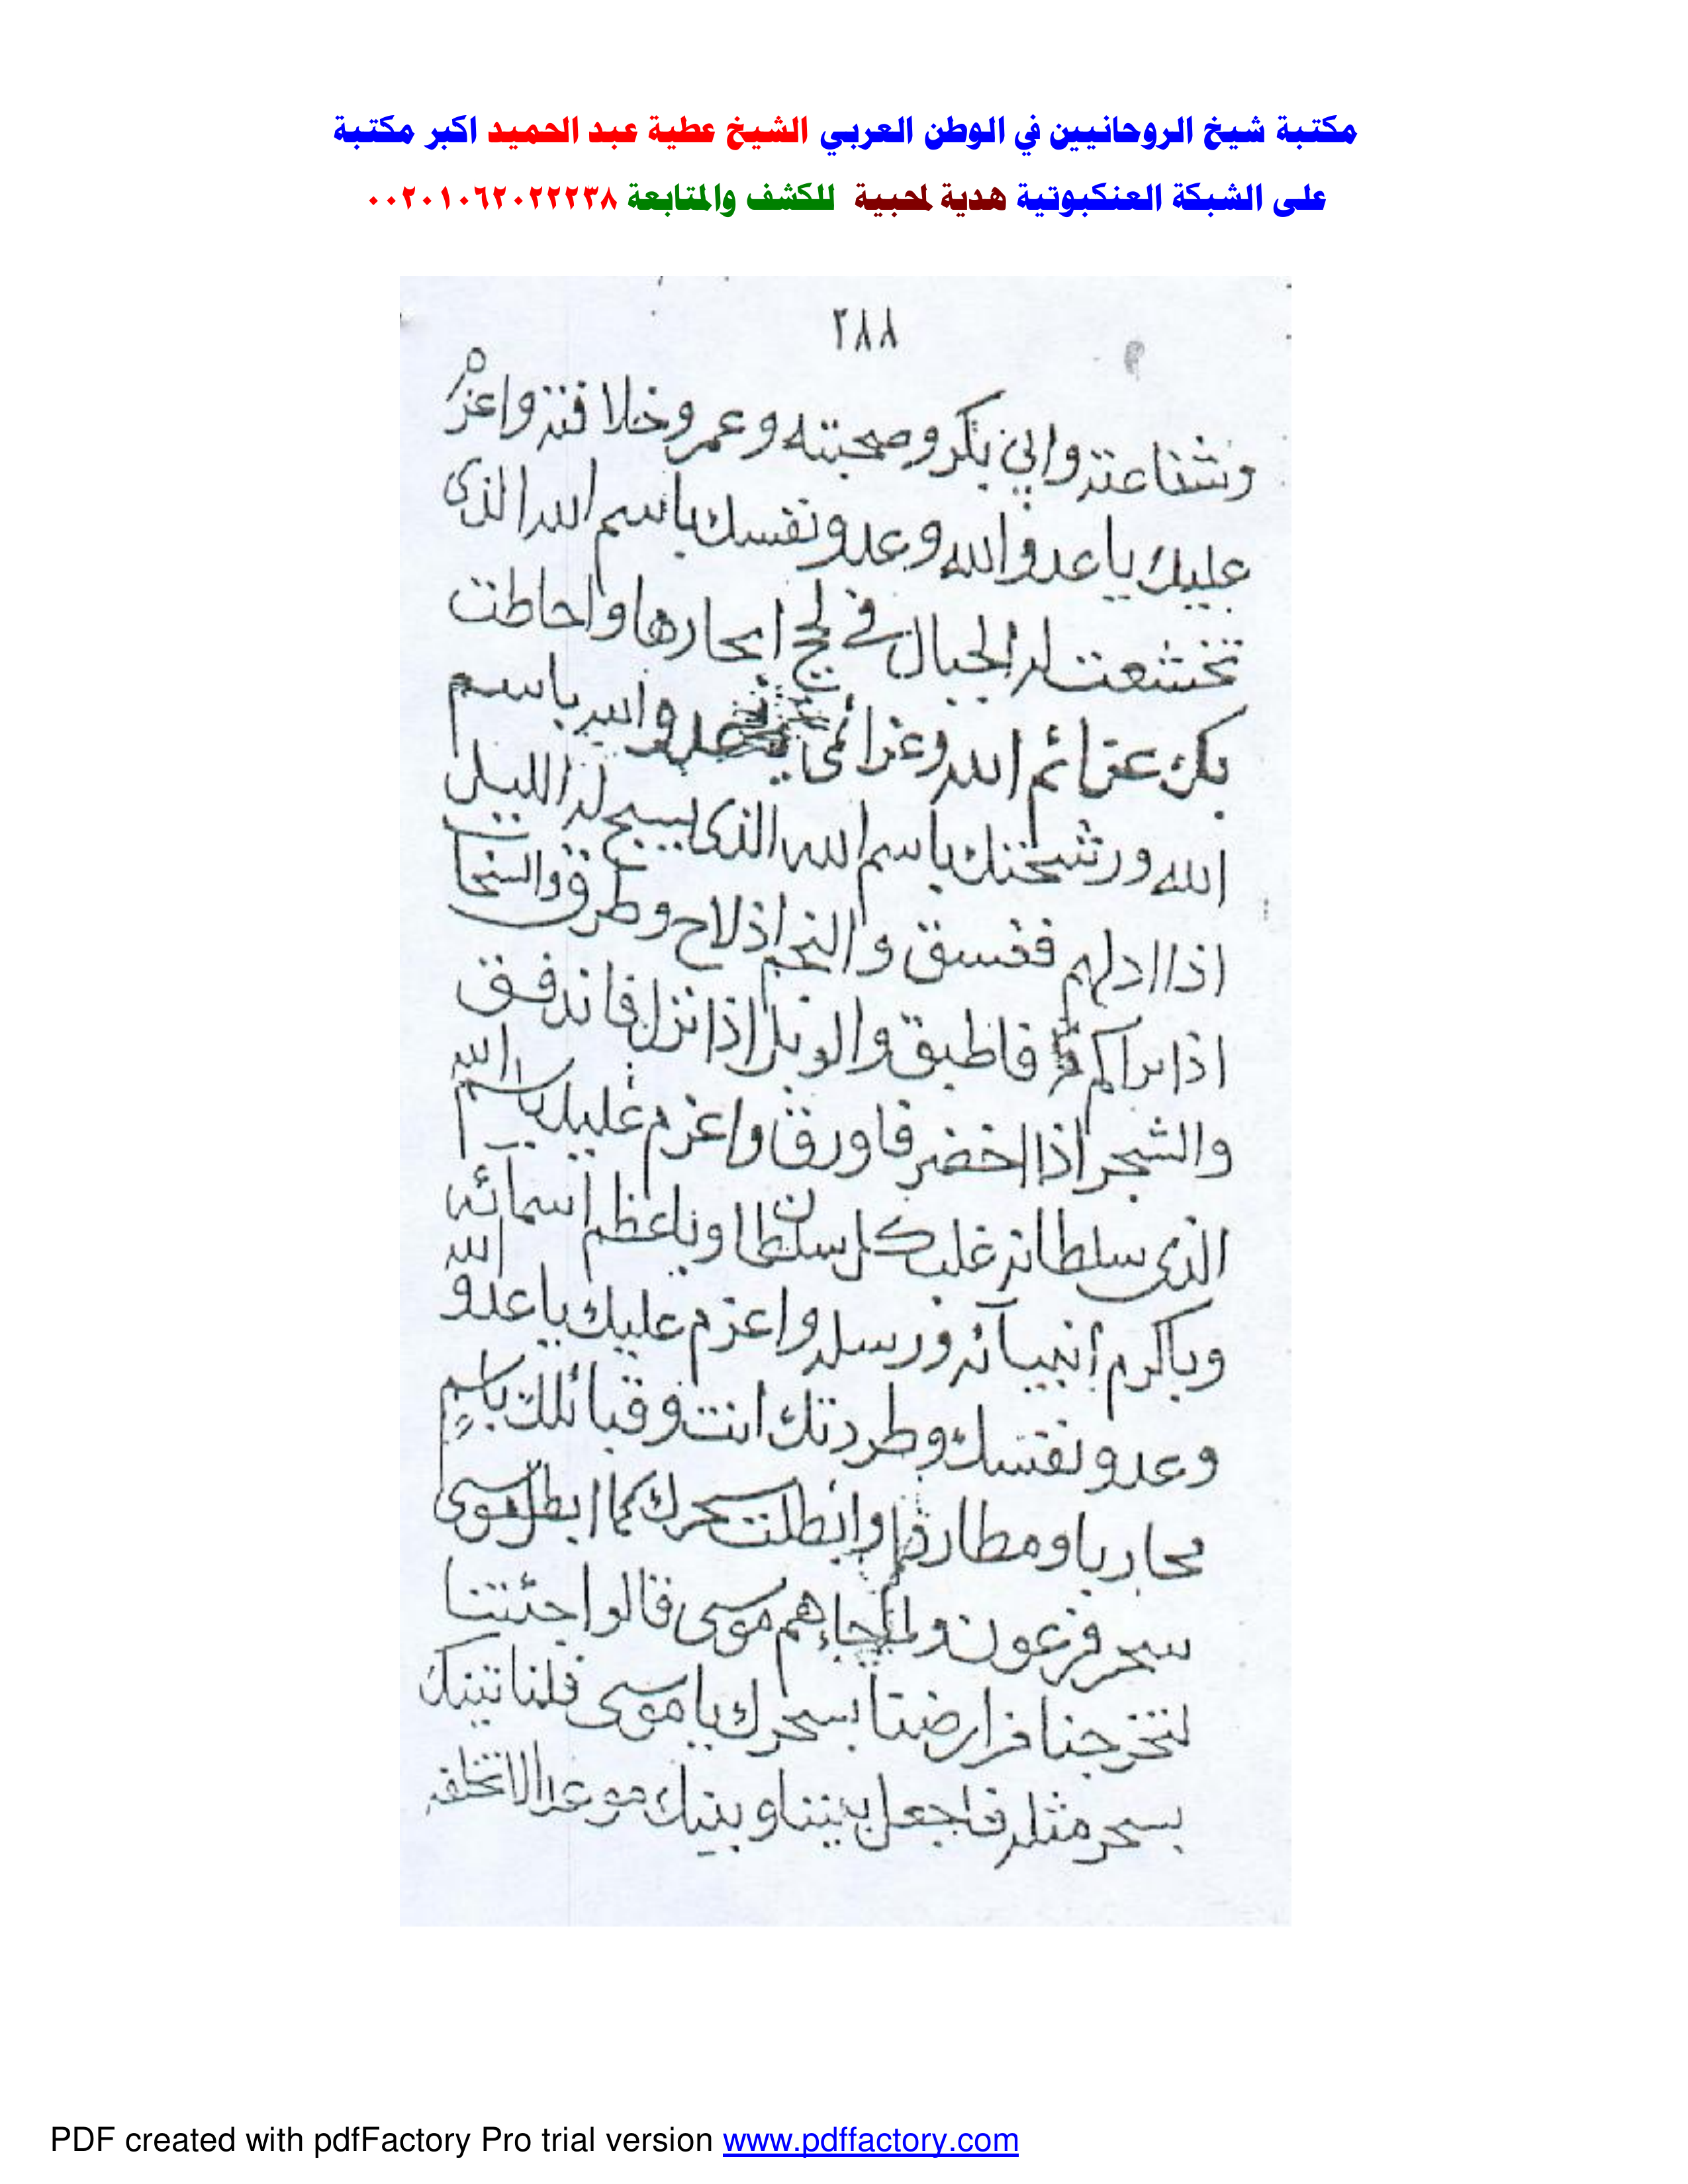 مكتبة شيخ الروحانيين في الوطن العربي الشيخ عطية عبد الحميد اكبر مكتبة
على الشبكة العنكبوتية هدية لمحبية للكشف والمتابعة ٠٠٢٠١٠٦٢٠٢٢٢٣٨
٢٨٨
وشفاعته وابي بكر وصحبته وعمر وخلافته واعزم
عليك يا عدو الله وعدو نفسك باسم الله الذى
تخشعت له الجبال في لجج ابحارها واحاطت
بك عزائم الله وعزائمى يا عدو الله باسم
الله ورشختك باسم الله الذى يسبح له الليل
اذا ادلهم فغسق والنجم اذ لاح وطرق والسحاب
اذا تراكم فاطبق والوبل اذا نزل فاندفق
والشجر اذا اخضر فاورق واعزم عليك باسم الله
الذى سلطانه غلب كل سلطان وباعظم اسمائه
وباكرم انبيائه ورسله واعزم عليك يا عدو الله
وعدو نفسك وطردتك انت وقبائلك باسم
محاربا ومطاردا وابطلت سحرك كما ابطل موسى
سحر فرعون ولما جاءهم موسى قالوا جئتنا
لتخرجنا من ارضنا بسحرك يا موسى فلنأتينك
بسحر مثله فاجعل بيننا وبينك موعدا لا نخلفه
PDF created with pdfFactory Pro trial version www.pdffactory.com